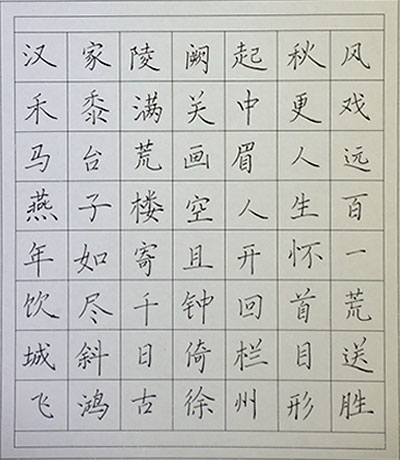 汉家陵阙起秋风
禾黍满关中更戏
马台荒画眉人远
燕子楼空人生百
年如寄且开怀一
饮尽千钟回首荒
城斜日倚栏目送
飞鸿古徐州形胜